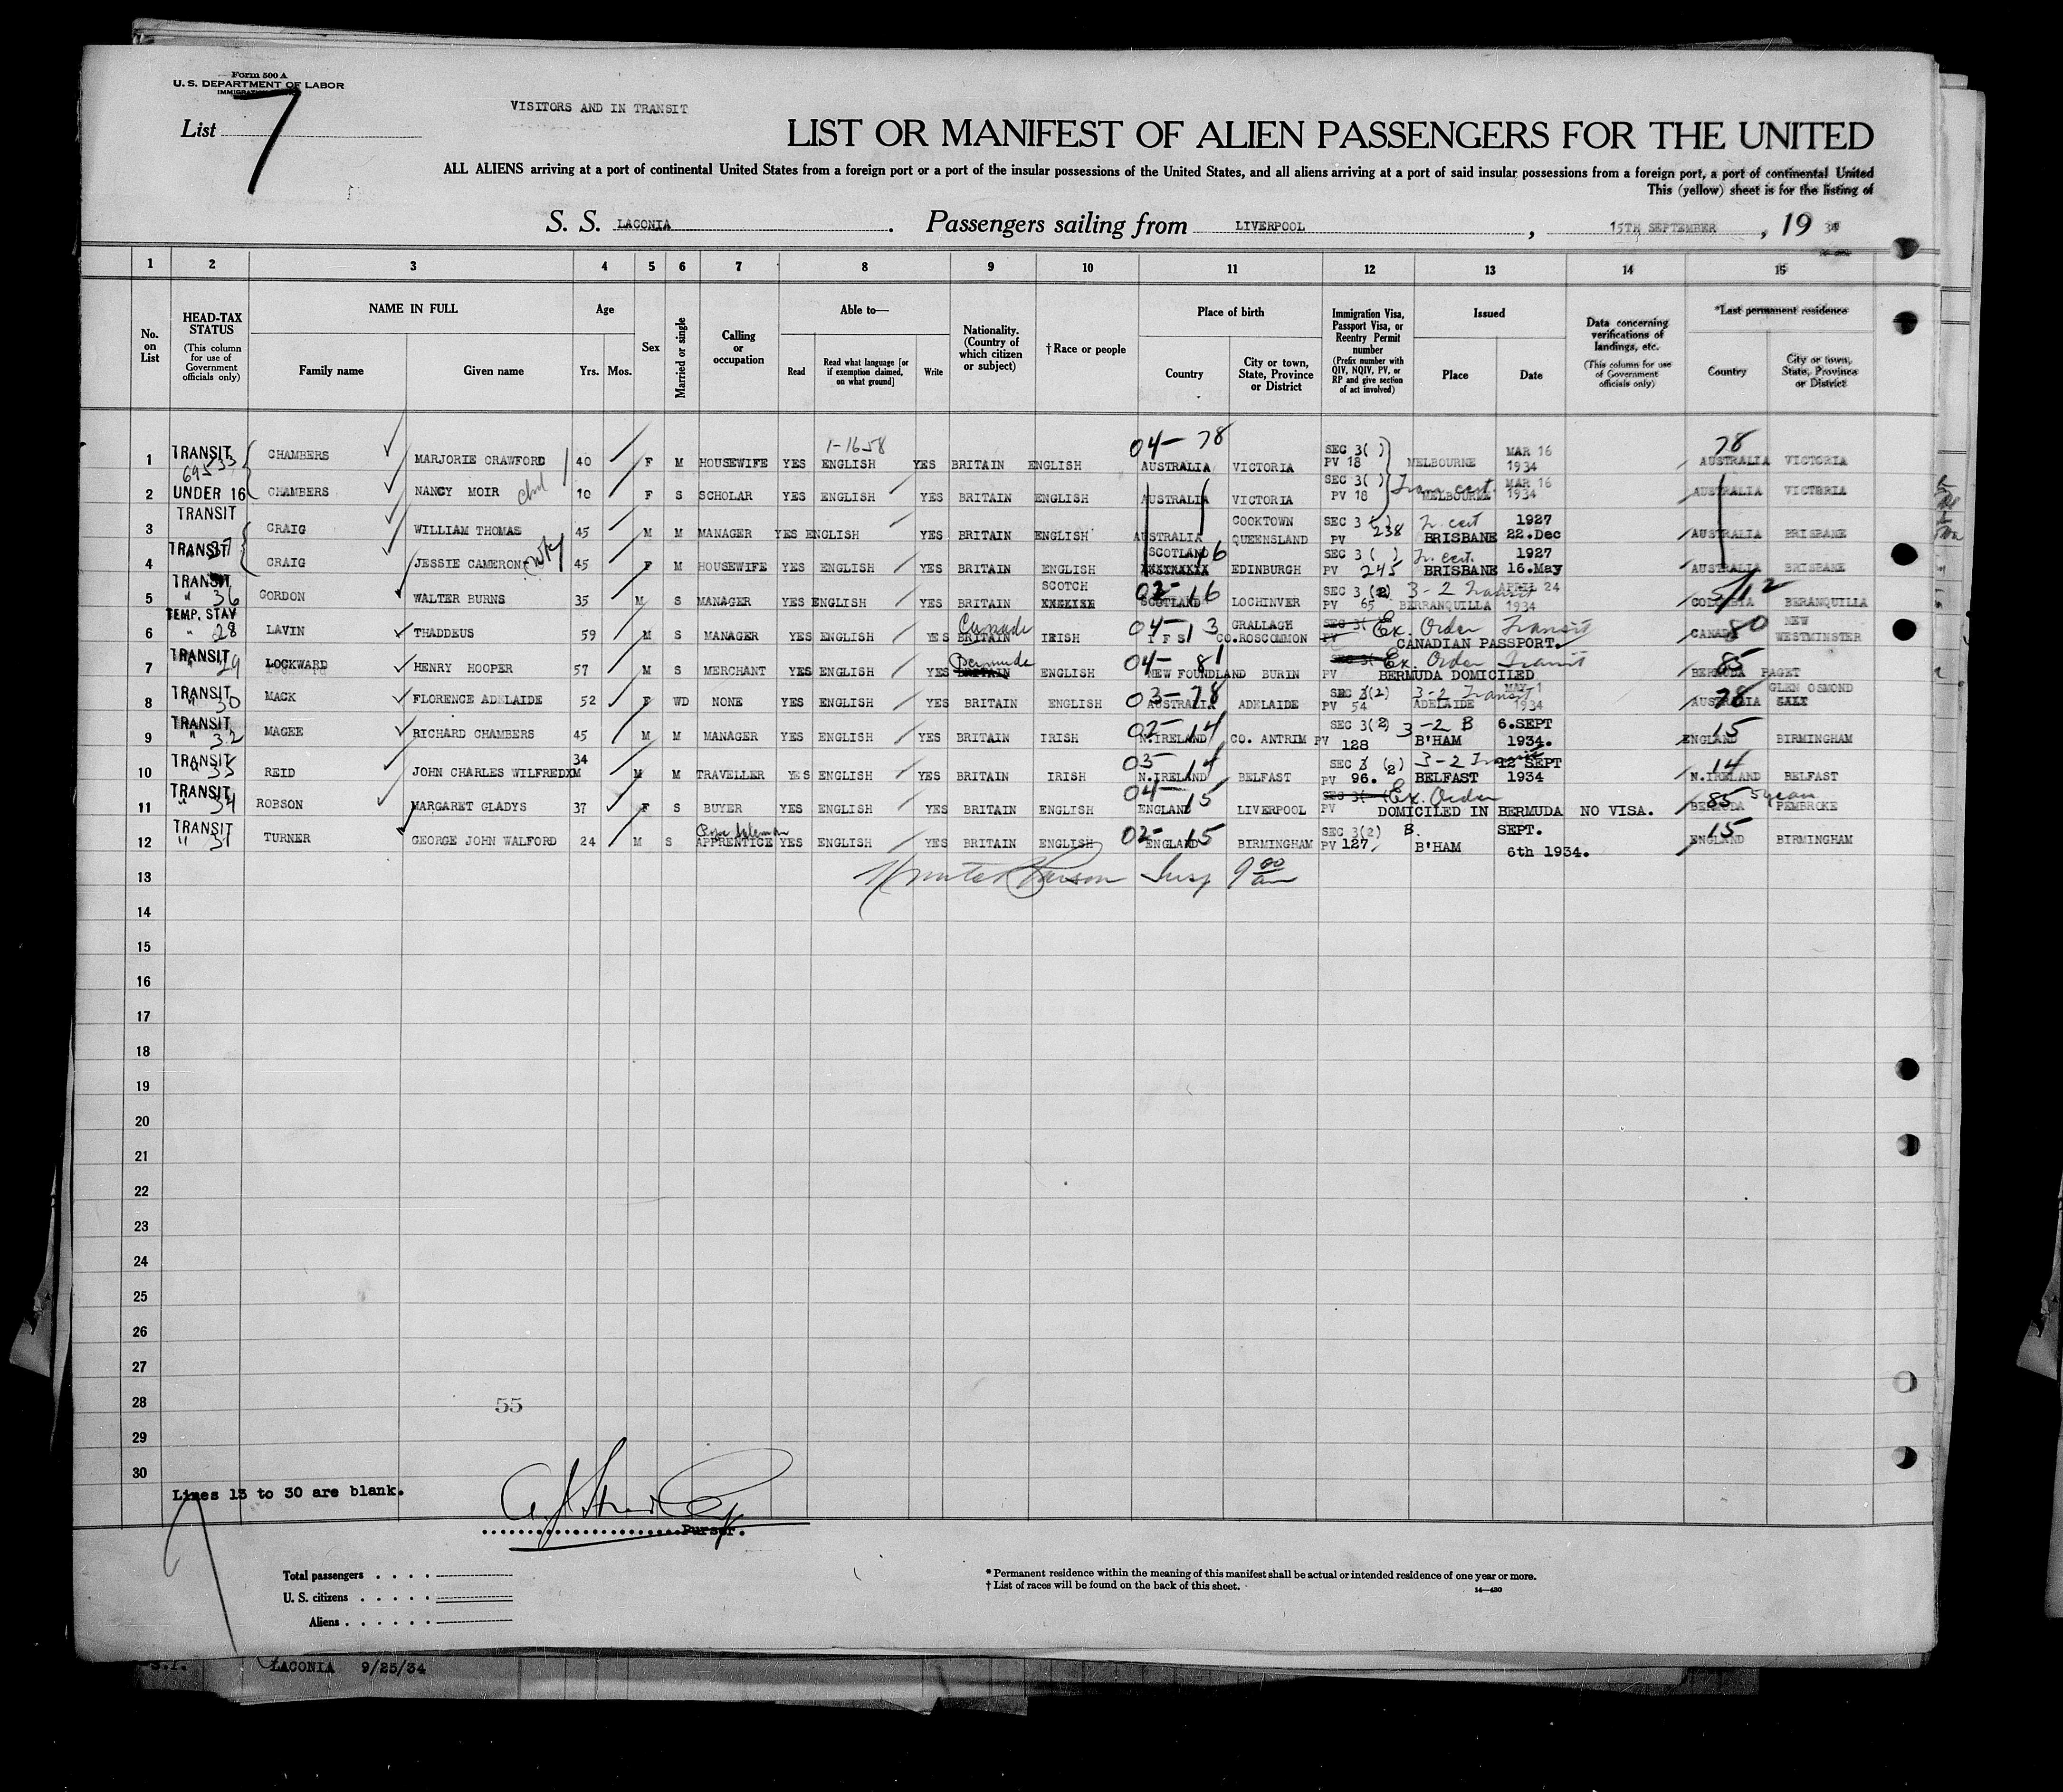 Form 500 A
U. S. DEPARTMENT OF LABOR
List 7
VISITORS AND IN TRANSIT
LIST OR MANIFEST OF ALIEN PASSENGERS FOR THE UNITED
ALL ALIENS arriving at a port of continental United States from a foreign port or a port of the insular possessions of the United States, and all aliens arriving at a port of said insular possessions from a foreign port, a port of continental United
This (yellow) sheet is for the listing of
S. S. LACONIA. Passengers sailing from LIVERPOOL, 15TH SEPTEMBER, 19 34
1 2 3 4 5 6 7 8 9 10 11 12 13 14 15
No. on List
HEAD-TAX STATUS (This column for use of Government officials only)
NAME IN FULL
Family name Given name
Age
Yrs. Mos.
Sex
Married or single
Calling or occupation
Able to—
Read Read what language [or if exemption claimed, on what ground] Write
Nationality. (Country of which citizen or subject)
†Race or people
Place of birth
Country City or town, State, Province or District
Immigration Visa, Passport Visa, or Reentry Permit number (Prefix number with QIV, NQIV, PV, or RP and give section of act involved)
Issued
Place Date
Data concerning verifications of landings, etc. (This column for use of Government officials only)
*Last permanent residence
Country City or town, State, Province or District
1-1658 04- 78 78
1 TRANSIT 69533 CHAMBERS MARJORIE CRAWFORD 40 F M HOUSEWIFE YES ENGLISH YES BRITAIN ENGLISH AUSTRALIA VICTORIA SEC 3( ) PV 18 MELBOURNE MAR 16 1934 AUSTRALIA VICTORIA
2 UNDER 16 CHAMBERS NANCY MOIR 10 F S SCHOLAR YES ENGLISH YES BRITAIN ENGLISH AUSTRALIA VICTORIA SEC 3( ) PV 18 MELBOURNE MAR 16 1934 AUSTRALIA VICTORIA
3 TRANSIT CRAIG WILLIAM THOMAS 45 M M MANAGER YES ENGLISH YES BRITAIN ENGLISH AUSTRALIA COOKTOWN QUEENSLAND SEC 3 ( ) PV 238 BRISBANE 1927 22.Dec AUSTRALIA BRISBANE
4 TRANSIT CRAIG JESSIE CAMERON 45 F M HOUSEWIFE YES ENGLISH YES BRITAIN ENGLISH SCOTLAND 6 EDINBURGH SEC 3 ( ) PV 245 BRISBANE 1927 16.May AUSTRALIA BRISBANE
5 TRANSIT " 36 GORDON WALTER BURNS 35 M S MANAGER YES ENGLISH YES BRITAIN SCOTCH 02- 16 SCOTLAND LOCHINVER SEC 3 (2) PV 65 3-2 Transit BERRANQUILLA APRIL 24 1934 COLOMBIA BERANQUILLA
6 TEMP. STAY " 28 LAVIN THADDEUS 59 M S MANAGER YES ENGLISH YES BRITAIN Canada IRISH 04- 13 I F S GRALLAGH CO.ROSCOMMON Ex. Order Transit CANADIAN PASSPORT. CANADA 80 NEW WESTMINSTER
7 TRANSIT " 29 LOCKWARD HENRY HOOPER 57 M S MERCHANT YES ENGLISH YES BRITAIN Bermuda ENGLISH 04- 81 NEW FOUNDLAND BURIN PV Ex. Order Transit BERMUDA DOMICILED 85 BERMUDA PAGET
8 TRANSIT " 30 MACK FLORENCE ADELAIDE 52 F WD NONE YES ENGLISH YES BRITAIN ENGLISH 03-78 AUSTRALIA ADELAIDE SEC 3(2) PV 54 3-2 Transit ADELAIDE MAY 1 1934 78 AUSTRALIA GLEN OSMOND
9 TRANSIT " 32 MAGEE RICHARD CHAMBERS 45 M M MANAGER YES ENGLISH YES BRITAIN IRISH 02- 14 N.IRELAND CO. ANTRIM PV SEC 3(2) 128 3-2 B B'HAM 6.SEPT 1934. 15 ENGLAND BIRMINGHAM
10 TRANSIT " 35 REID JOHN CHARLES WILFRED 34 M M TRAVELLER YES ENGLISH YES BRITAIN IRISH 03- 14 N.IRELAND BELFAST SEC 3 (2) PV 96. 3-2 Transit BELFAST 12 SEPT 1934 14 N.IRELAND BELFAST
11 TRANSIT " 34 ROBSON MARGARET GLADYS 37 F S BUYER YES ENGLISH YES BRITAIN ENGLISH 04- 15 ENGLAND LIVERPOOL PV Ex. Order DOMICILED IN BERMUDA NO VISA. 85 5 years BERMUDA PEMBROKE
12 TRANSIT " 31 TURNER GEORGE JOHN WALFORD 24 M S APPRENTICE YES ENGLISH YES BRITAIN ENGLISH 02- 15 ENGLAND BIRMINGHAM SEC 3(2) PV 127 B. B'HAM SEPT. 6th 1934. 15 ENGLAND BIRMINGHAM
13
14
15
16
17
18
19
20
21
22
23
24
25
26
27
28
29
30
55
Lines 13 to 30 are blank.
Purser.
Total passengers
U. S. citizens
Aliens
* Permanent residence within the meaning of this manifest shall be actual or intended residence of one year or more.
† List of races will be found on the back of this sheet.
14—430
S.I. LACONIA 9/25/34